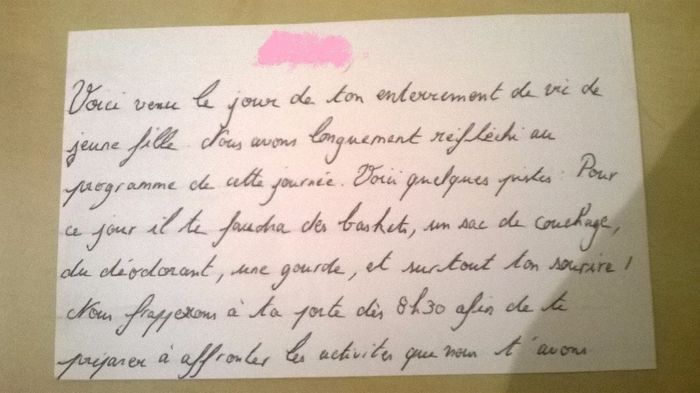 Voici venu le jour de ton enterrement de vie de
jeune fille. Nous avons longuement réfléchi au
programme de cette journée. Voici quelques pistes : Pour
ce jour il te faudra des baskets, un sac de couchage,
du déodorant, une gourde, et surtout ton sourire !
Nous frapperons à ta porte dès 8h30 afin de te
préparer à affronter les activités que nous t'avons